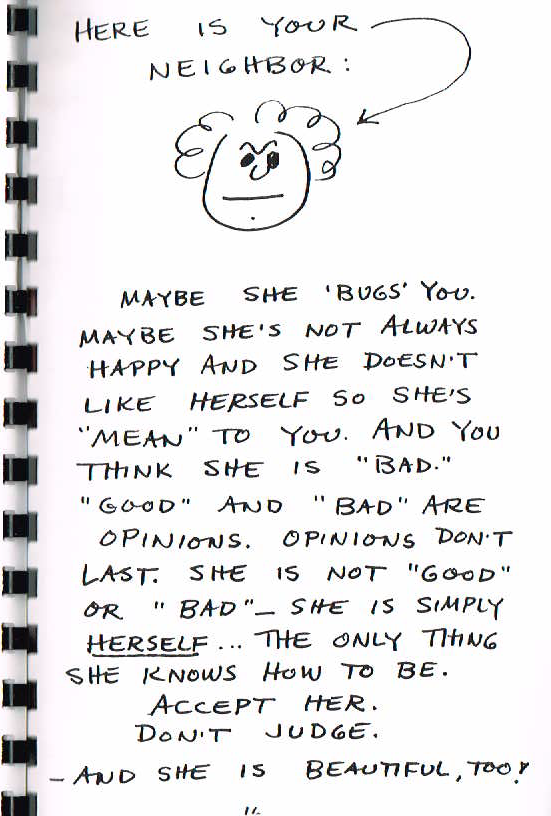 HERE IS YOUR
NEIGHBOR:
MAYBE SHE 'BUGS' YOU.
MAYBE SHE'S NOT ALWAYS
HAPPY AND SHE DOESN'T
LIKE HERSELF SO SHE'S
"MEAN" TO YOU. AND YOU
THINK SHE IS "BAD."
"GOOD" AND "BAD" ARE
OPINIONS. OPINIONS DON'T
LAST. SHE IS NOT "GOOD"
OR "BAD"— SHE IS SIMPLY
HERSELF... THE ONLY THING
SHE KNOWS HOW TO BE.
ACCEPT HER.
DON'T JUDGE.
—AND SHE IS BEAUTIFUL, TOO!